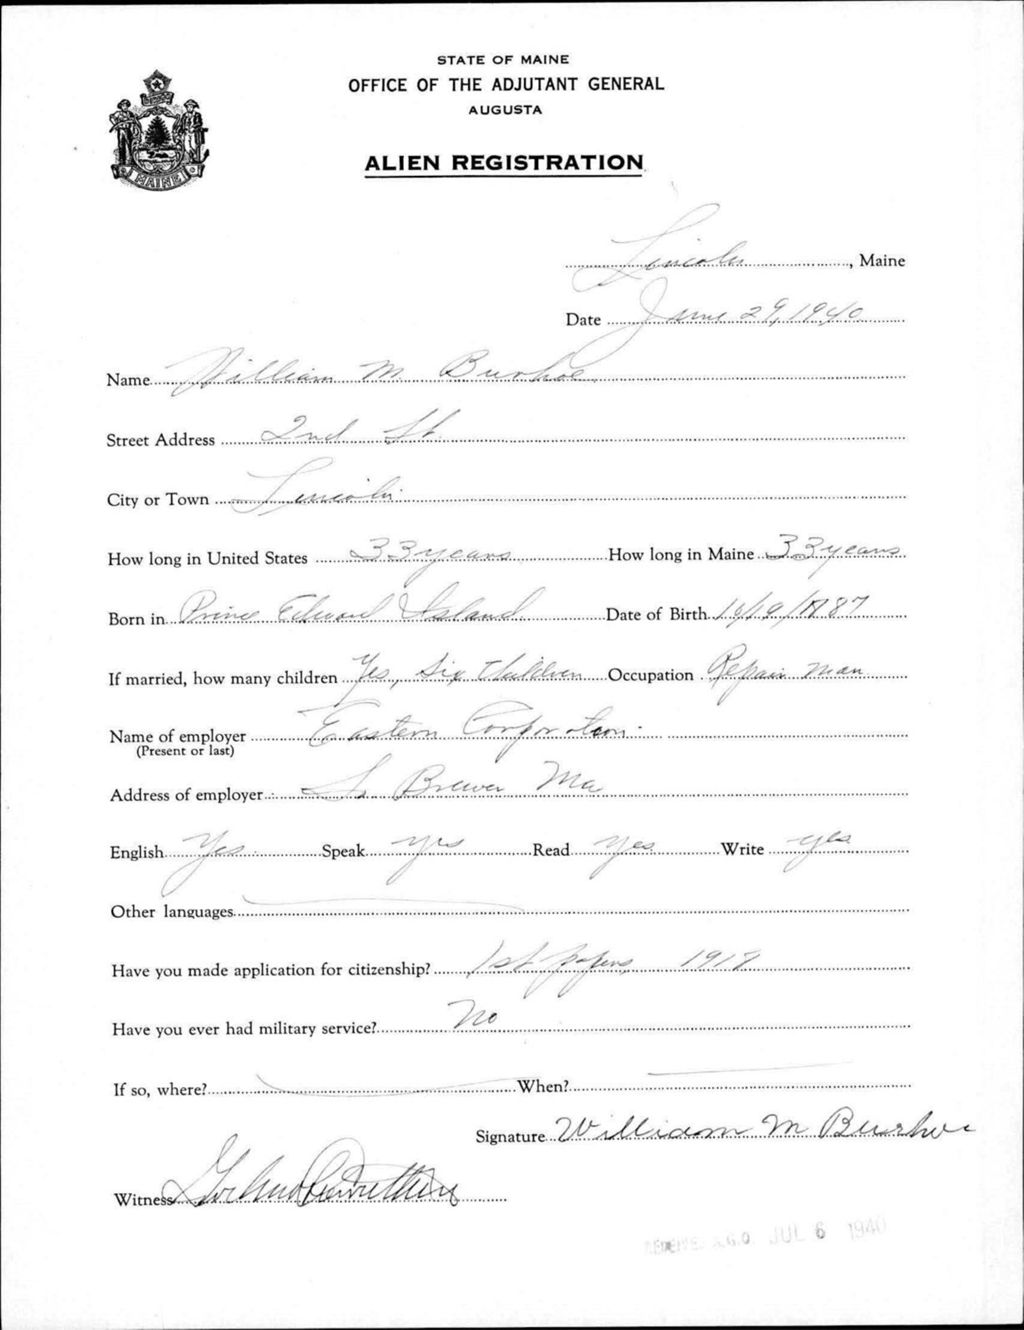 STATE OF MAINE
OFFICE OF THE ADJUTANT GENERAL
AUGUSTA
ALIEN REGISTRATION
MAINE
Lincoln, Maine
Date June 29, 1940
Name William M Burhoe
Street Address 2nd St.
City or Town Lincoln
How long in United States 33 years How long in Maine 33 years
Born in Prince Edward Island Date of Birth 10/19/1887
If married, how many children Yes, Six Children Occupation Repair man
Name of employer Eastern Corporation
(Present or last)
Address of employer So Brewer Me
English Yes Speak yes Read yes Write yes
Other languages
Have you made application for citizenship? 1st papers, 1918
Have you ever had military service? No
If so, where? When?
Signature William M Burhoe
Witness
A.G.O. JUL 6 1940